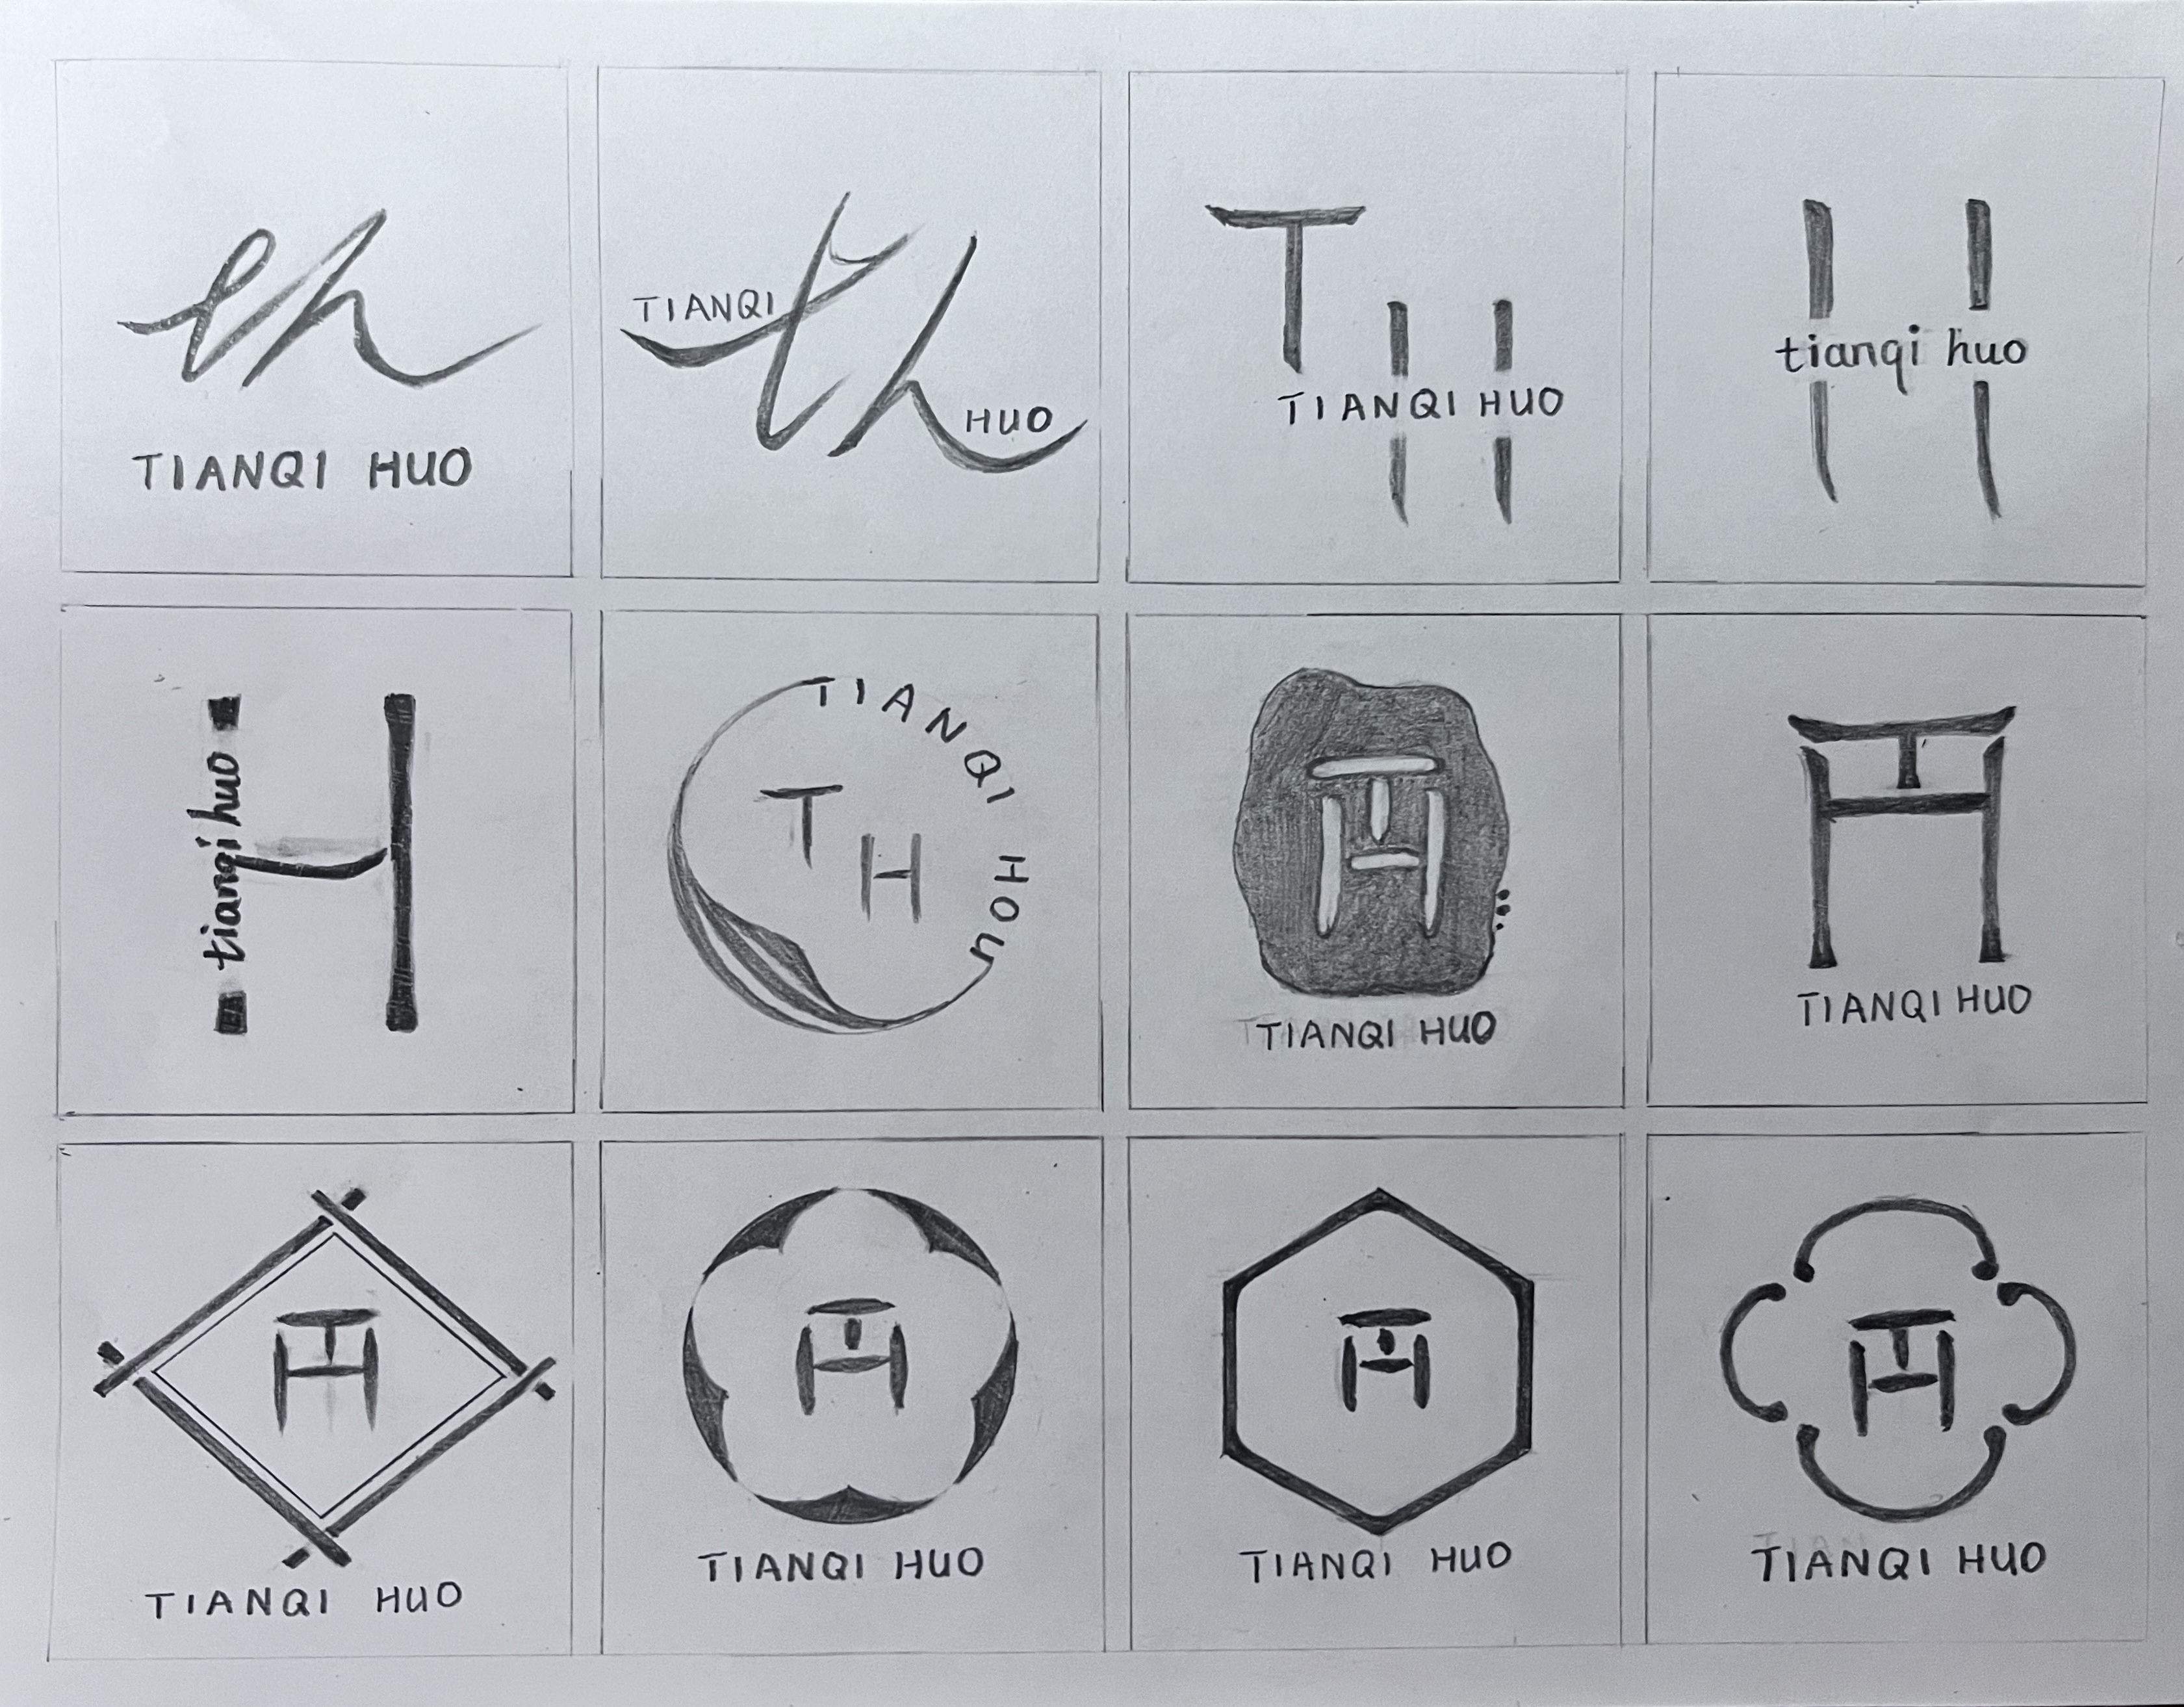 th
TIANQI HUO
TIANQI
th
HUO
T
TIANQI HUO
tianqi huo
tianqi huo
H
TIANQI HOU
T
H
TH
TIANQI HUO
TH
TIANQI HUO
TH
TIANQI HUO
TH
TIANQI HUO
TH
TIANQI HUO
TH
TIANQI HUO